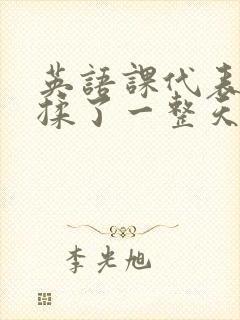 英語課代表
揉了一整天
李光旭